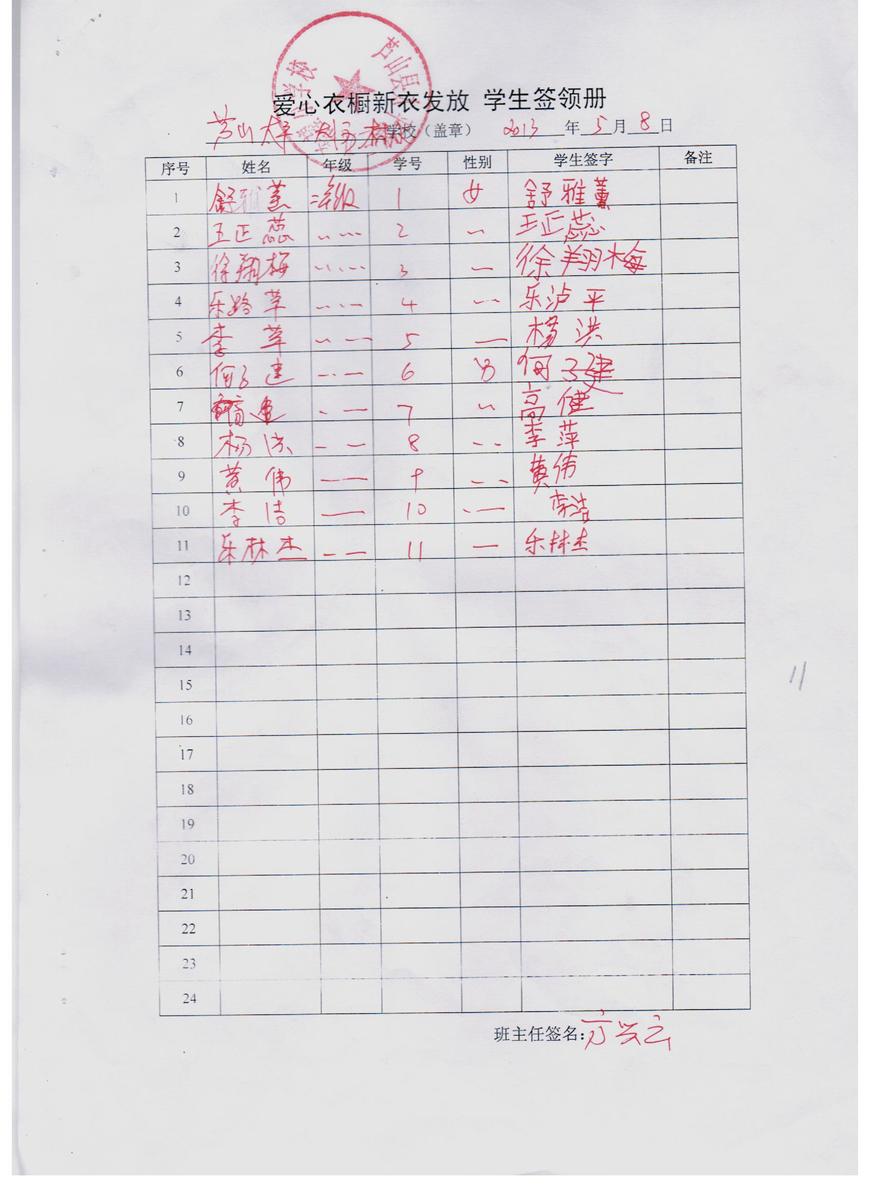 爱心衣橱新衣发放 学生签领册
芦山 学校（盖章） 2013年5月8日
序号 姓名 年级 学号 性别 学生签字 备注
1 舒雅薰 二年级 1 女 舒雅薰
2 王正蕊 〃 〃 2 〃 王正蕊
3 徐翔梅 〃 〃 3 〃 徐翔梅
4 乐 4 〃 乐泸平
5 李萍 〃 〃 5 〃 杨洪
6 何子建 〃 〃 6 男 何子建
7 高健 〃 〃 7 〃 高健
8 杨洪 〃 〃 8 〃 李萍
9 黄伟 〃 〃 9 〃 黄伟
10 李洁 〃 10 〃 李洁
11 乐林杰 〃 〃 11 〃 乐林杰
12
13
14
15
16
17
18
19
20
21
22
23
24
班主任签名：
11